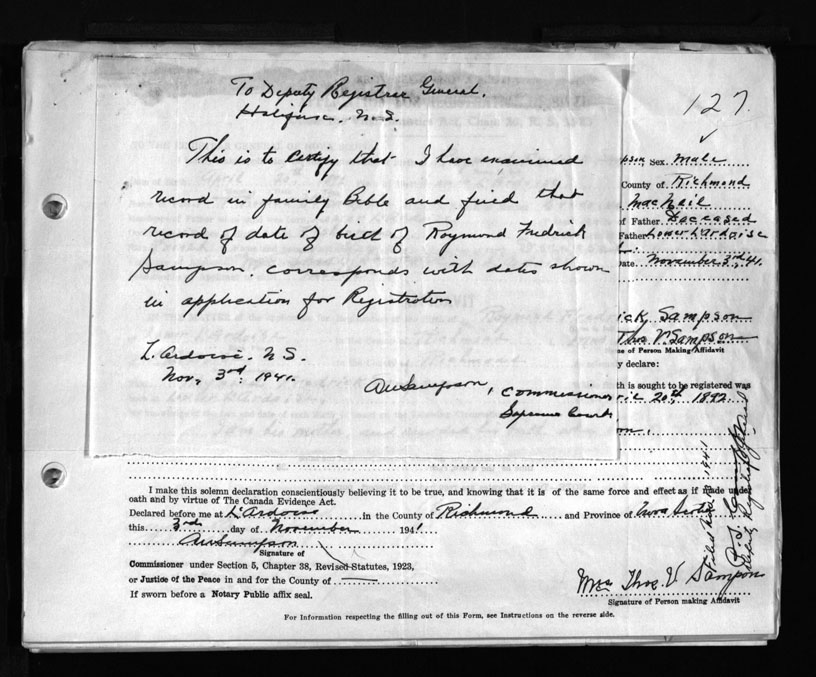 To Deputy Registrar General,
Halifax, N.S.
127.
This is to certify that I have examined
record in family Bible and find that
record of date of birth of Raymond Fredrick
Sampson, corresponds with dates shown
in application for Registration
L'Ardoise, N.S.
Nov, 3rd, 1941.
AW Sampson, Commissioner
Supreme Court
pson, Sex Male
County of Richmond
MacNeil
of Father Deceased
Father Lower L'Ardoise
Date November 3rd, 41.
ick Sampson
Thos V. Sampson
me of Person Making Affidavit
y declare:
th is sought to be registered was
ril 20th, 1892.
on.
I make this solemn declaration conscientiously believing it to be true, and knowing that it is of the same force and effect as if made under
oath and by virtue of The Canada Evidence Act.
Declared before me at L'Ardoise in the County of Richmond and Province of Nova Scotia
this 3rd day of November 1941
AW Sampson
Signature of
Commissioner under Section 5, Chapter 38, Revised Statutes, 1923,
or Justice of the Peace in and for the County of
If sworn before a Notary Public affix seal.
Mrs Thos. V Sampson
Signature of Person making Affidavit
For Information respecting the filling out of this Form, see Instructions on the reverse side.
Filed 1941
Deputy Registrar General